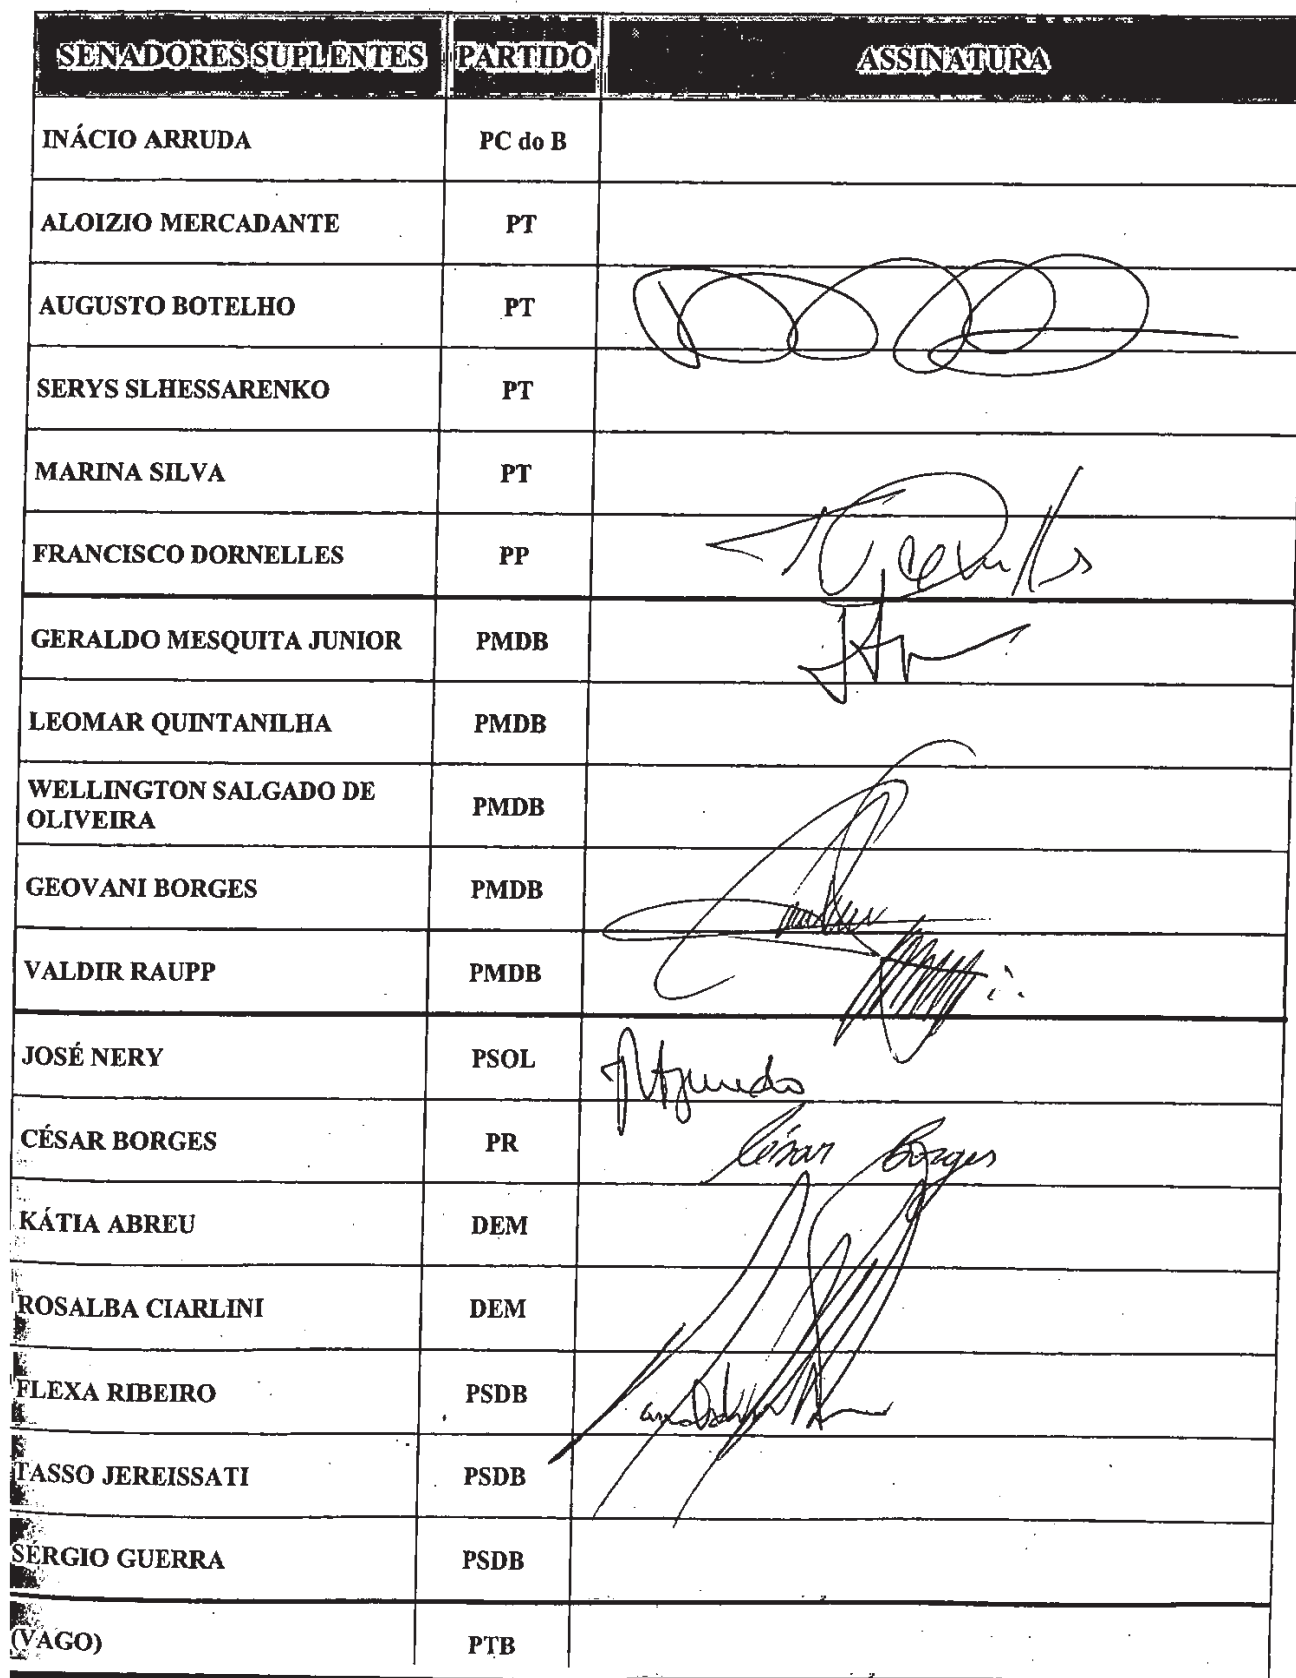 SENADORES SUPLENTES PARTIDO ASSINATURA
INÁCIO ARRUDA PC do B
ALOIZIO MERCADANTE PT
AUGUSTO BOTELHO PT
SERYS SLHESSARENKO PT
MARINA SILVA PT
FRANCISCO DORNELLES PP
GERALDO MESQUITA JUNIOR PMDB
LEOMAR QUINTANILHA PMDB
WELLINGTON SALGADO DE
OLIVEIRA PMDB
GEOVANI BORGES PMDB
VALDIR RAUPP PMDB
JOSÉ NERY PSOL
CÉSAR BORGES PR César Borges
KÁTIA ABREU DEM
ROSALBA CIARLINI DEM
FLEXA RIBEIRO PSDB
TASSO JEREISSATI PSDB
SÉRGIO GUERRA PSDB
(VAGO) PTB